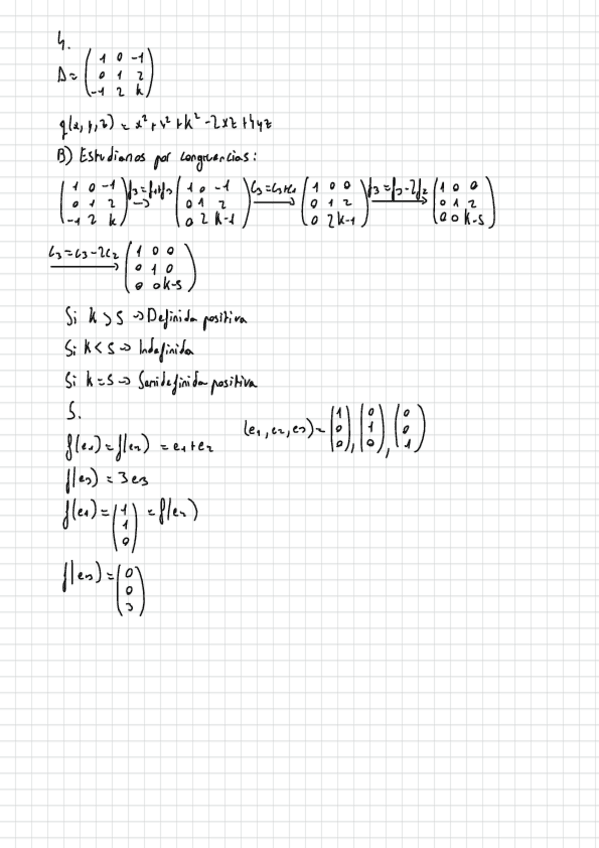 4.
A = ( 1 0 -1 ; 0 1 2 ; -1 2 k )
q(x,y,z) = x² + y² + k² - 2xz + 4yz
B) Estudiamos por congruencias:
( 1 0 -1 ; 0 1 2 ; -1 2 k ) f3=f1+f3 → ( 1 0 -1 ; 0 1 2 ; 0 2 k-1 ) c3=c3+c1 → ( 1 0 0 ; 0 1 2 ; 0 2 k-1 ) f3=f3-2f2 → ( 1 0 0 ; 0 1 2 ; 0 0 k-5 )
c3=c3-2c2 → ( 1 0 0 ; 0 1 0 ; 0 0 k-5 )
Si k > 5 → Definida positiva
Si k < 5 → Indefinida
Si k = 5 → Semidefinida positiva
5.
f(e1) = f(e2) = e1+e2 (e1, e2, e3) = ( 1 ; 0 ; 0 ), ( 0 ; 1 ; 0 ), ( 0 ; 0 ; 1 )
f(e3) = 3e3
f(e1) = ( 1 ; 1 ; 0 ) = f(e2)
f(e3) = ( 0 ; 0 ; 3 )